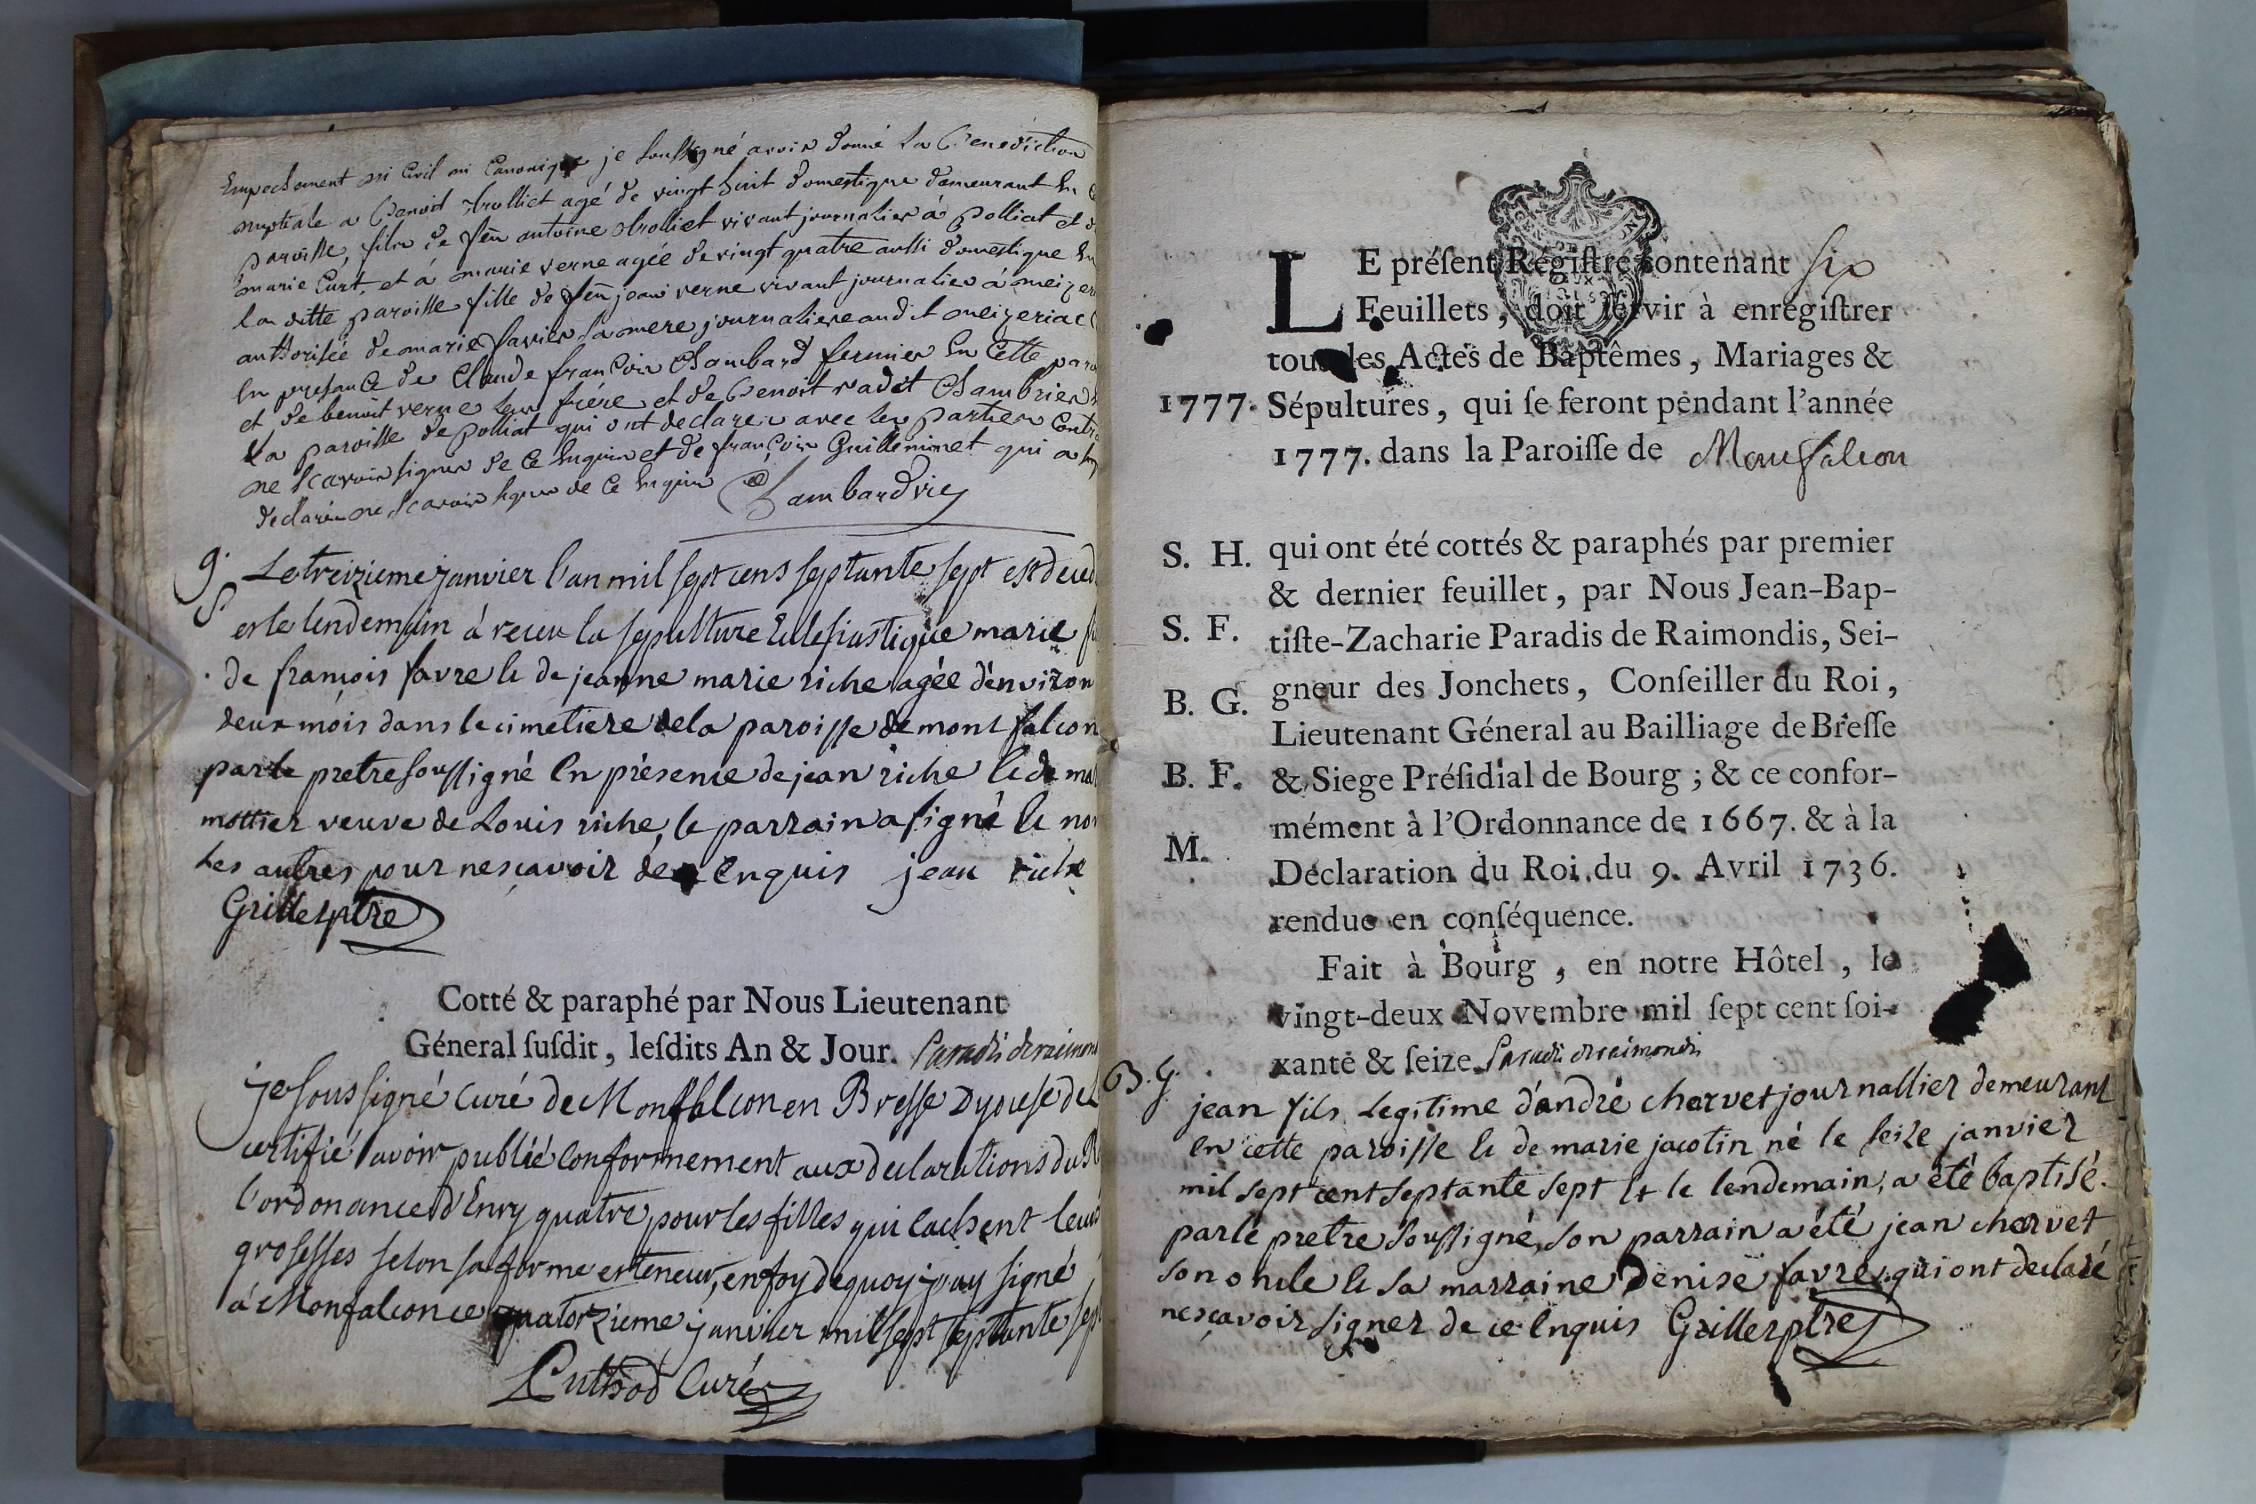 Empechement ni Civil ni Canonique je soussigné avoir donné la Benediction
nuptiale a Benoit trolliet agé de vingt huit domestique demeurant en
paroisse, fils de feu antoine trolliet vivant journalier à polliat et
marie Curt, et à marie verne agée de vingt quatre aussi domestique en
la ditte paroisse fille de feu jean verne vivant journalier à meizeriat
authorisée de marie favier sa mere journaliere audit meizeriac
en presance de Claude françois Chambard fermier en cette paro
et de benoit verne leur frére et de Benoit vadet Chambrier
la paroisse de polliat qui ont declarer avec les parties Contra
ne scavoir signer de ce enquis et de françois Guilleminet qui a
declaré ne scavoir signer de ce enquis Chambard vic
9.
S
Le treizieme janvier l'an mil sept cens septante sept est deced
et le lendemain à reçeu la sepulture Eclesiastique marie
de françois favre & de jeanne marie riche agée d'environ
deux mois dans le cimetiere de la paroisse de mont falcon
par le pretre soussigné En présence de jean riche & de ma
mottier veuve de Louis riche, le parrain a signé & non
les autres pour ne sçavoir de Enquis jean riche
Griller ptre
Cotté & paraphé par Nous Lieutenant
Géneral suſdit, leſdits An & Jour. Paradis deraimon
je soussigné Curé de Monfalcon en Bresse Dyocese de L
certifié avoir publié conformement aux declarations du R
l'ordonance d'Enry quatre pour les filles qui cachent leurs
grosesses selon sa forme et teneur, en foy de quoy j'ay signé
à Monfalcon ce quatorzieme janvier mil sept septante sept
Luthod Curé
LE préſent Régiſtre contenant six
Feuillets, doit ſervir à enrégiſtrer
tous les Actes de Baptêmes, Mariages &
1777. Sépultures, qui ſe feront pendant l'année
1777. dans la Paroiſſe de Monfalcon
S. H. qui ont été cottés & paraphés par premier
& dernier feuillet, par Nous Jean-Bap-
S. F. tiſte-Zacharie Paradis de Raimondis, Sei-
B. G. gneur des Jonchets, Conſeiller du Roi,
Lieutenant Géneral au Bailliage de Breſſe
B. F. & Siege Préſidial de Bourg; & ce confor-
mément à l'Ordonnance de 1667. & à la
M. Déclaration du Roi du 9. Avril 1736.
rendue en conſéquence.
Fait à Bourg, en notre Hôtel, le
vingt-deux Novembre mil ſept cent ſoi-
xante & ſeize. Paradis deraimondis
B. G.
jean fils Legitime d'andré chervet journallier demeurant
en cette paroisse & de marie jacotin né le seize janvier
mil sept cent septante sept Et le lendemain, a été baptisé.
par le pretre soussigné, son parrain a été jean chervet
son oncle & sa marraine Denise favre qui ont declaré
ne sçavoir signer de ce Enquis Griller ptre